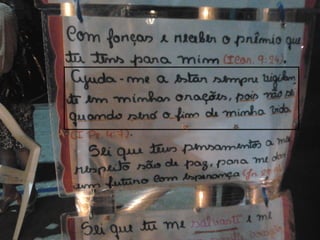 Com forças e receber o prêmio que
tu tens para mim (I Cor. 9:24).
Ajuda-me a estar sempre vigilan
te em minhas orações, pois não sei
quando será o fim de minha vida
(I Pe. 4:7).
Sei que teus pensamentos a meu
respeito são de paz, para me dar
um futuro com esperança
Sei que tu me salvaste e me